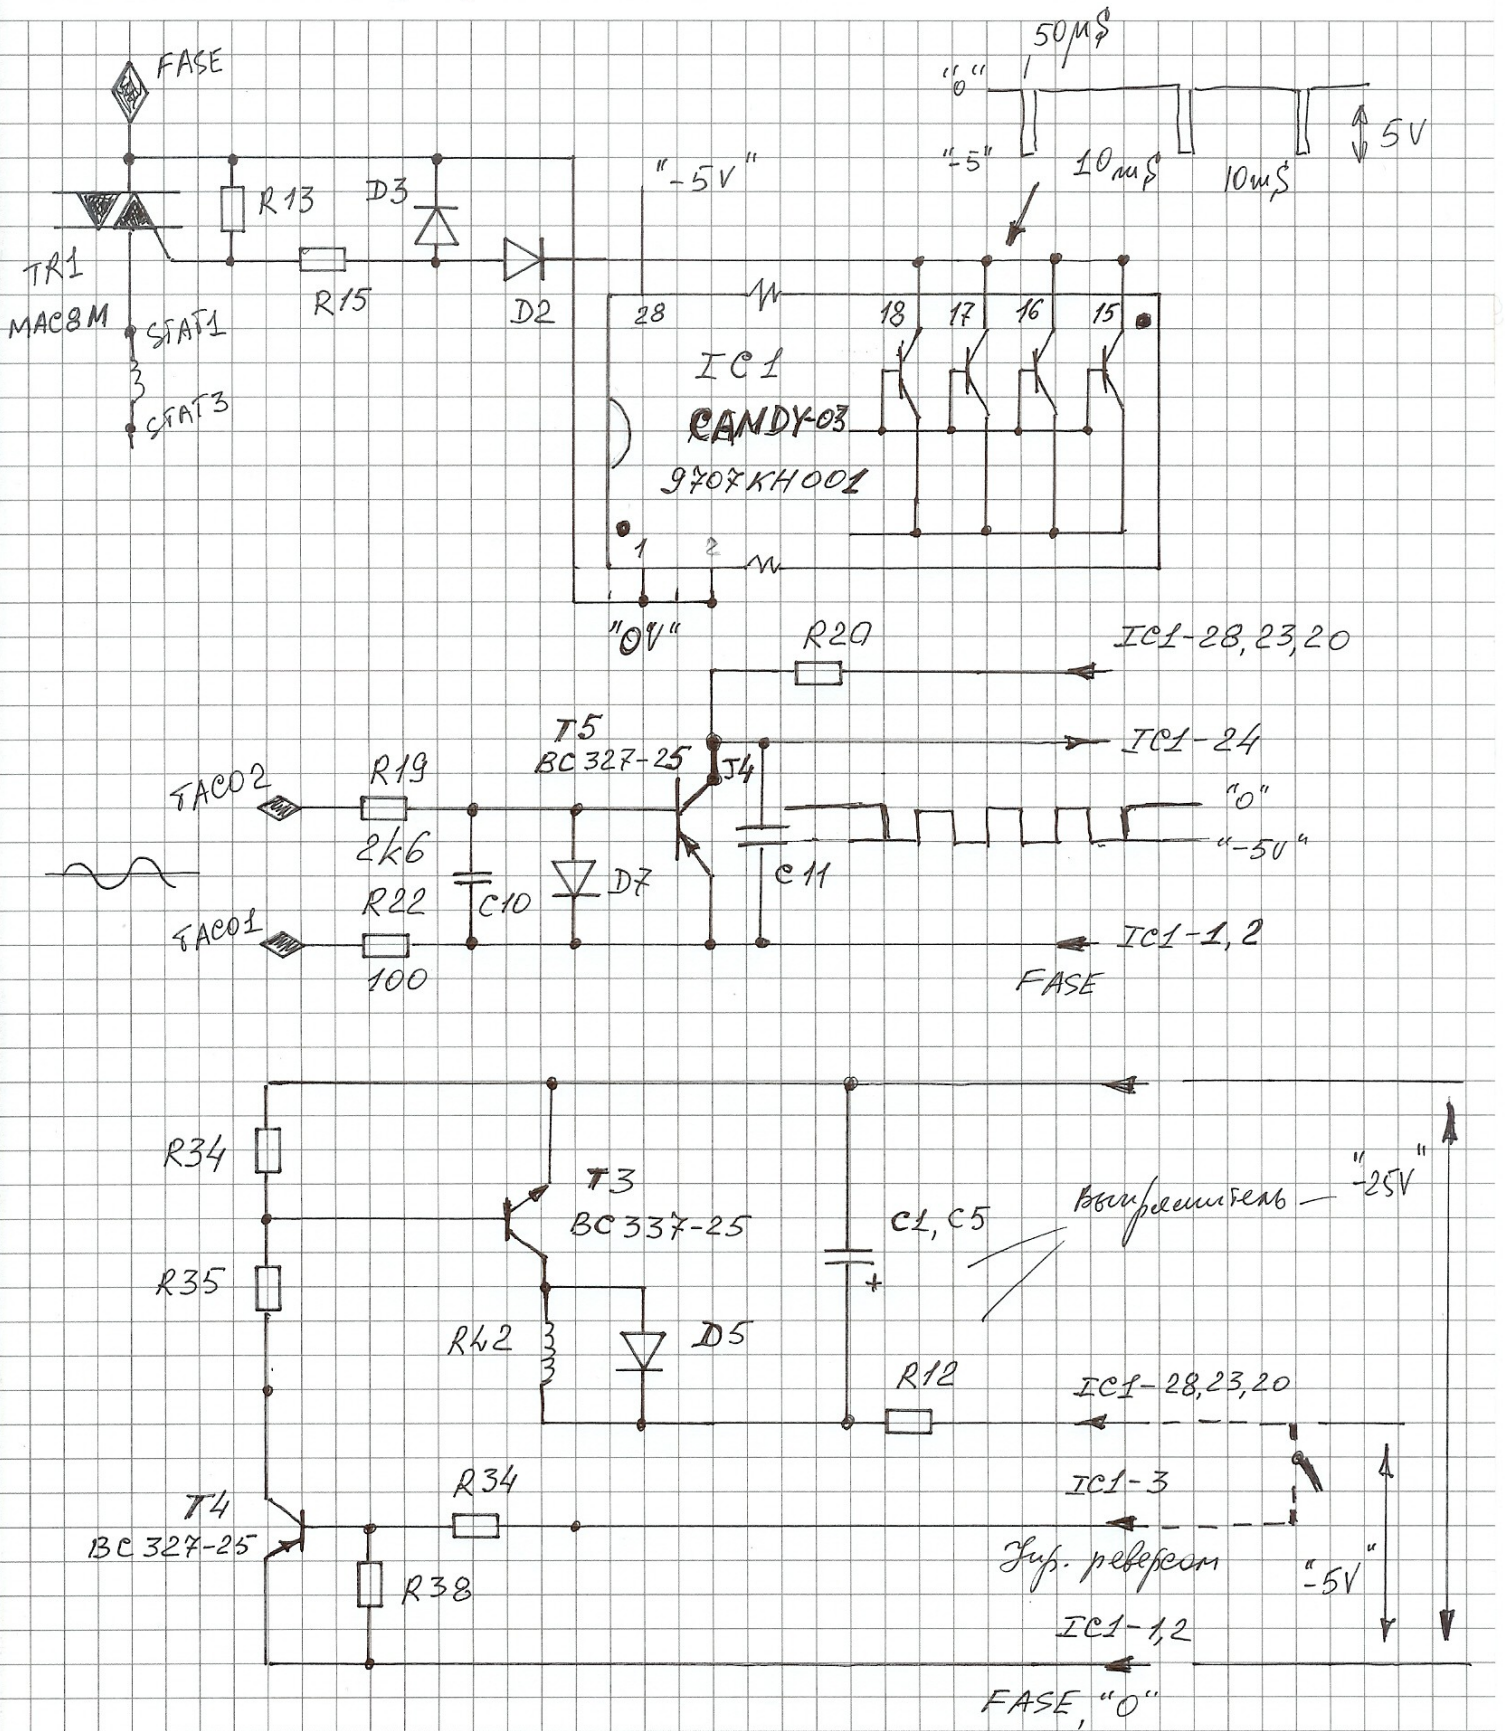 FASE
50μS
"0"
"-5"
10mS
10mS
5V
"-5V"
R13
D3
TR1
MAC8M
R15
D2
28
18
17
16
15
STAT1
STAT3
IC1
CANDY-03
9707KH001
1
2
"0V"
R20
IC1-28,23,20
T5
BC327-25
J4
IC1-24
TACO2
R19
2k6
"0"
"-5V"
C10
D7
C11
TACO1
R22
100
IC1-1,2
FASE
R34
T3
BC337-25
C1, C5
+
Выпрямитель
"-25V"
R35
R42
D5
R12
IC1-28,23,20
T4
BC327-25
R34
IC1-3
Упр. реверсом
"-5V"
R38
IC1-1,2
FASE, "0"